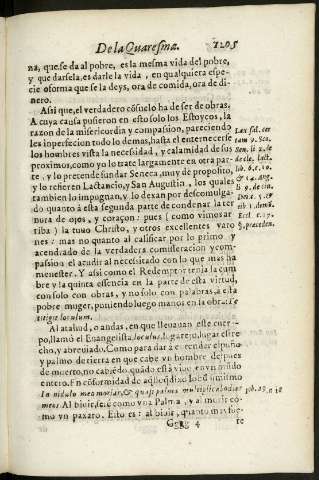 De la Quaresma. 1205
na, que se da al pobre, es la mesma vida del pobre,
y que darsela, es darle la vida, en qualquiera espe-
cie o forma que se la deys, ora de comida, ora de di-
nero.
Assi que, el verdadero cõsuelo ha de ser de obras.
A cuya causa pusieron en esto solo los Estoycos, la
razon de la misericordia y compasion, pareciendo
les inperfecion todo lo demos, hasta el enternecerse
los hombres vista la necessidad, y calamidad de sus
proximos, como yo lo trate largamente en otra par-
te, y lo pretende fundar Seneca, muy de proposito,
y lo refieren Lactancio, y San Augustin, los quales
tambien lo impugnan, y lo dexan por descomulga-
do quanto à esta segunda parte de condenar la ter
nura de ojos, y coraçon: pues (como vimos ar
riba) la tuuo Christo, y otros excellentes varo
nes: mas no quanto al calificar por lo primo y
acendrado de la verdadera comiseracion y com-
passion el acudir al necessitado con lo que mas ha
menester. Y assi como el Redemptor tenia la cum
bre y la quinta essencia en la parte de esta virtud,
con solo con obras, y no solo con palabras, a esta
pobre muger, poniendo luego manos en la obra: Te
titigit loculum.
Al ataud, o andas, en que lleuauan este cuer-
po, llamò el Euangelista, loculus, lugarejo, lugar estre
cho, y abreuiado. Como para dar a entender el puño
y palmo de tierra en que cabe vn hombre despues
de muerto, no cabiẽdo, quãdo està viuo en vn mũdo
entero. En cõformidad de aq̃llo q̃ dixo Iob
In nidulo meo moriar, & quasi palma multiplicabo dies
meos. Al biuir, como vna Palma, y al morir có
mo vn paxaro. Esto es: al biuir, quanto mas fue-
Gggg 4 re
Lact. 
6. c. 10.
& 14. Aug.
l. 9. de ciu.
Dei c. 5.
Iob. 29. n 18